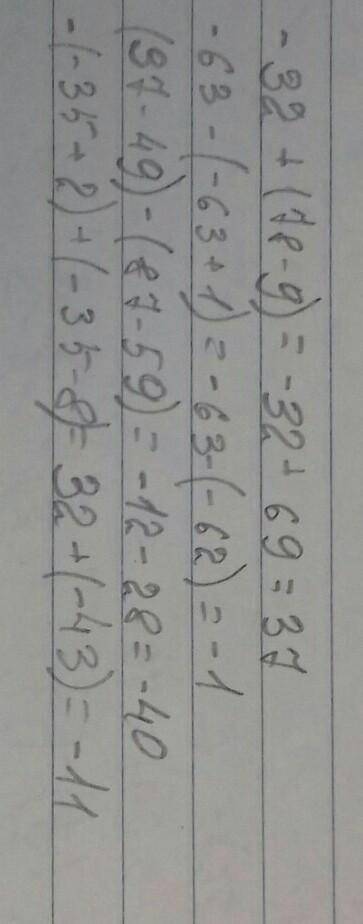 -32 + (78-9) = -32 + 69 = 37
-63 - (-63+1) = -63-(-62) = -1
(37-49) - (87-59) = -12-28 = -40
-(-35+2)+(-35-8)= 32+(-43)= -11